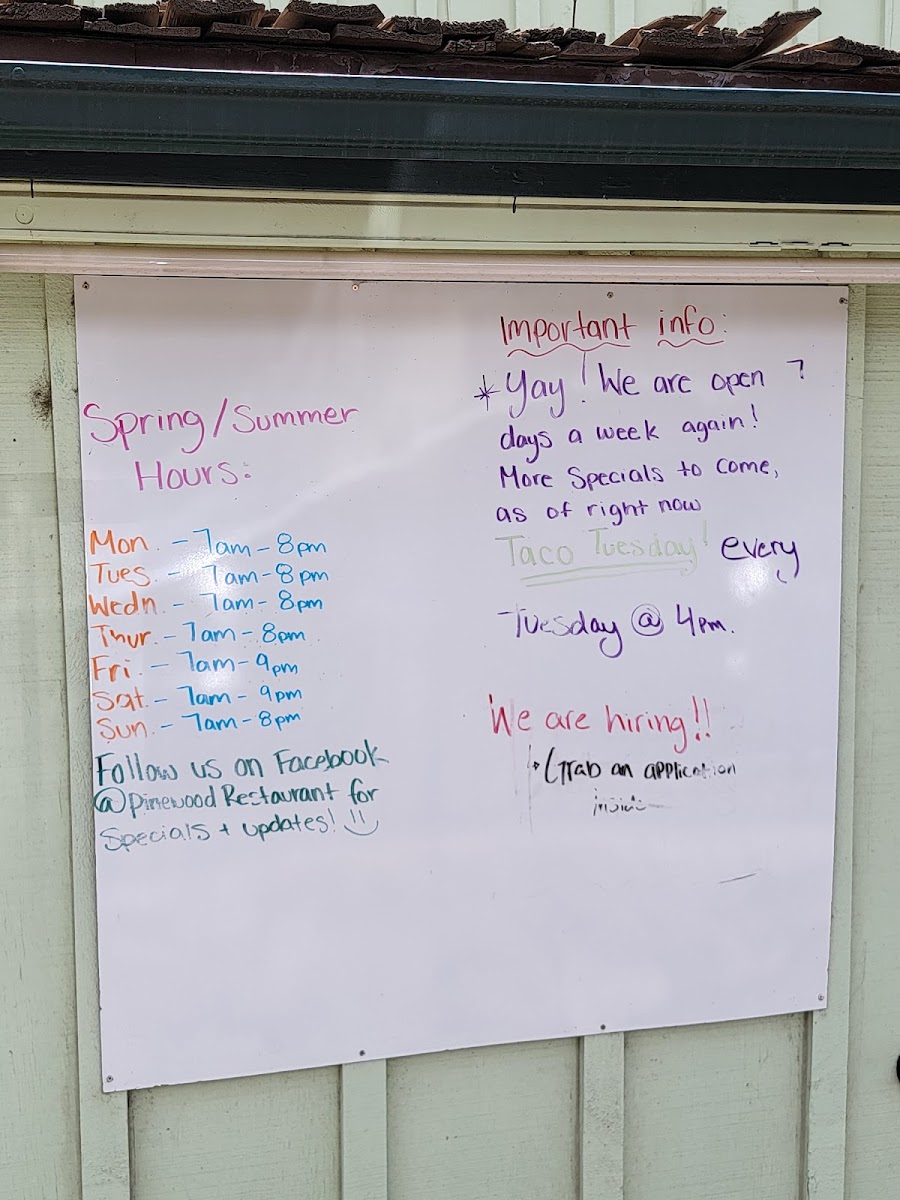 Spring/Summer
Hours:
Mon. - 7am - 8pm
Tues. - 7am - 8pm
Wedn. - 7am - 8pm
Thur. - 7am - 8pm
Fri. - 7am - 9pm
Sat. - 7am - 9pm
Sun. - 7am - 8pm
Follow us on Facebook
@Pinewood Restaurant for
Specials + updates!
Important info:
* Yay! We are open 7
days a week again!
More Specials to come,
as of right now
Taco Tuesday! every
Tuesday @ 4pm.
We are hiring!!
Grab an application
inside